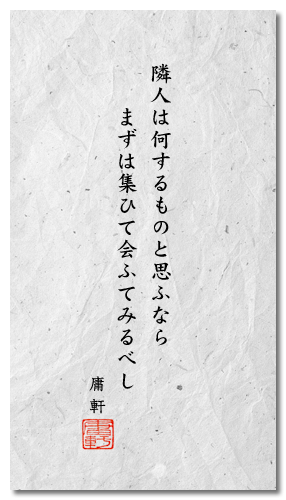 隣人は何するものと思ふなら
まずは集ひて会ふてみるべし
庸軒
庸軒